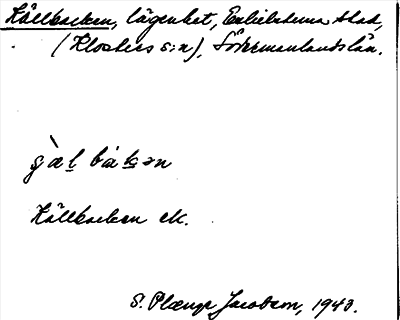 Källbacken, lägenhet, Eskilstuna stad,
(Klosters s:n), Södermanlands län.
Källbacken ek.
S. Plænge Jacobson, 1943.